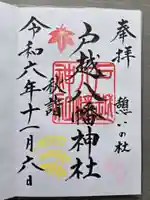 奉拝
憩いの杜
戸越八幡神社
秋詣
令和六年十一月六日